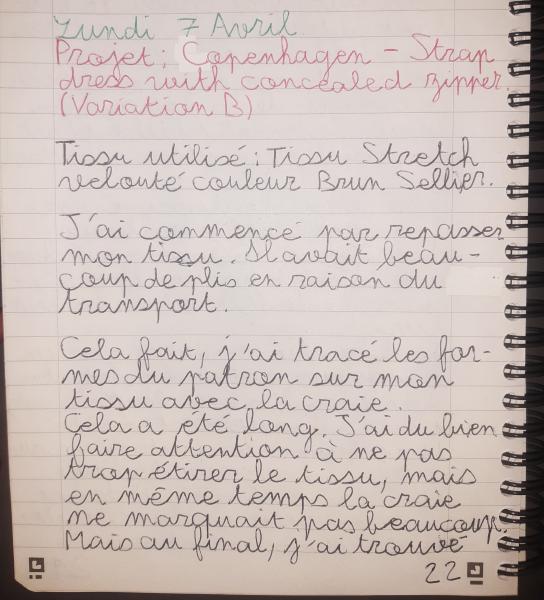 Lundi 7 Avril
Projet : Copenhagen - Strap
dress with concealed zipper.
(Variation B)
Tissu utilisé : Tissu Stretch
velouté couleur Brun Sellier.
J'ai commencé par repasser
mon tissu. Il avait beau-
coup de plis en raison du
transport.
Cela fait, j'ai tracé les for-
mes du patron sur mon
tissu avec la craie.
Cela a été long. J'ai du bien
faire attention à ne pas
trop étirer le tissu, mais
en même temps la craie
ne marquait pas beaucoup.
Mais au final, j'ai trouvé
22